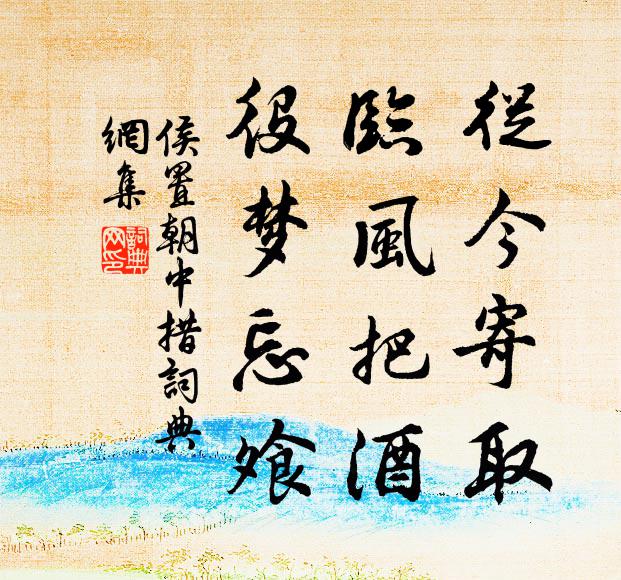 從今寄取
臨風把酒
役梦忘飧
侯置朝中措詞典
網集
詞典网印